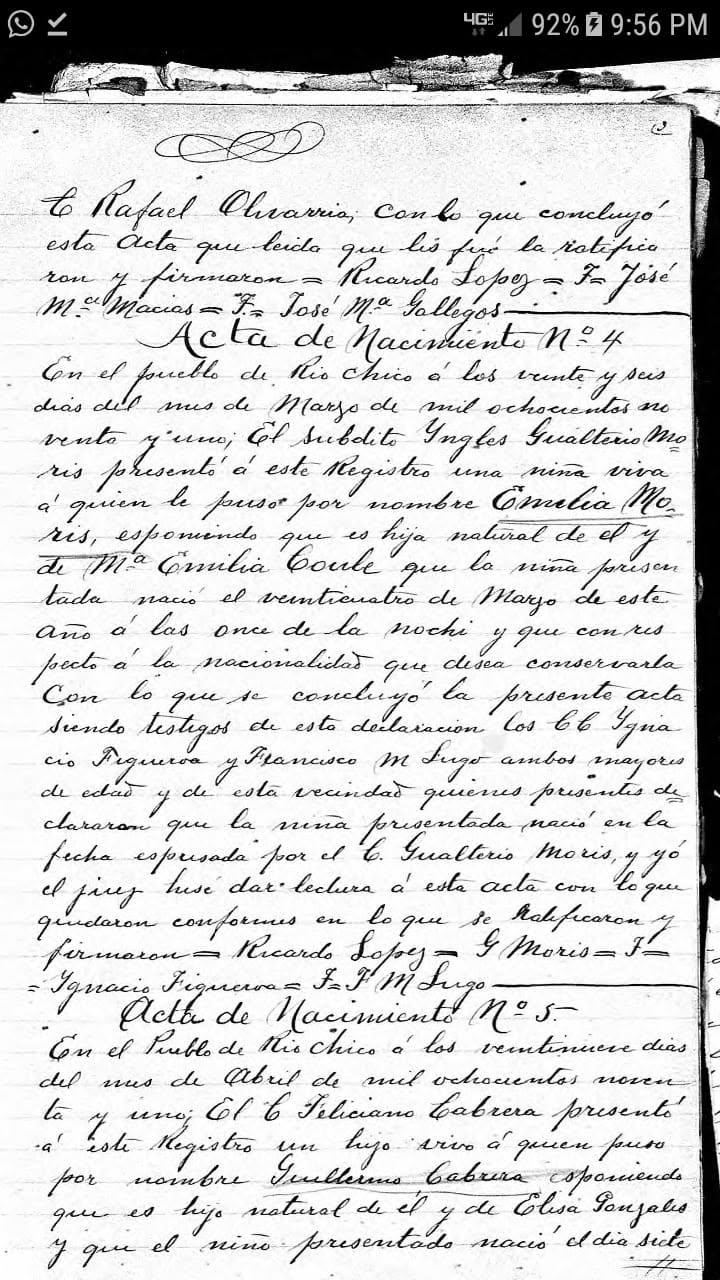 4G LTE 92% 9:56 PM
3
C Rafael Olivarria, con lo que concluyó
esta Acta que leida que lis fué la ratifica
ron y firmaron = Ricardo Lopez = F= José
M.ª Macias = F.= José M.ª Gallegos
Acta de Nacimiento Nº 4
En el pueblo de Rio Chico á los veinte y seis
dias del mes de Marzo de mil ochocientos no
venta y uno; El subdito Yngles Gualterio Mo=
ris presentó á este Registro una niña viva
á quien le puso por nombre Emelia Mo-
ris, esponiendo que es hija natural de él y
de Mª Emilia que la niña presen
tada nació el veinticuatro de Marzo de este
año á las once de la nochi y que con res
pecto á la nacionalidad que desea conservarla
Con lo que se concluyó la presente acta
siendo testigos de esta declaracion los CC Ygna
cio Figueroa y Francisco M Lugo ambos mayores
de edad y de esta vecindad quienes presentes de=
clararon que la niña presentada nació en la
fecha espresada por el C. Gualterio Moris, y yó
el juez hisé dar lectura á esta acta con lo que
quedaron conformes en lo que se ratificaron y
firmaron = Ricardo Lopez = G Moris = F=
= Ygnacio Figueroa = F= F M Lugo
Acta de Nacimiento Nº 5-
En el Pueblo de Rio Chico á los veintinueve dias
del mes de Abril de mil ochocientos noven
ta y uno; El C Feliciano Cabrera presentó
á este Registro un hijo vivo á quien puso
por nombre Guillermo Cabrera esponiendo
que es hijo natural de él y de Elisa Gonzales
y que el niño presentado nació el dia siete